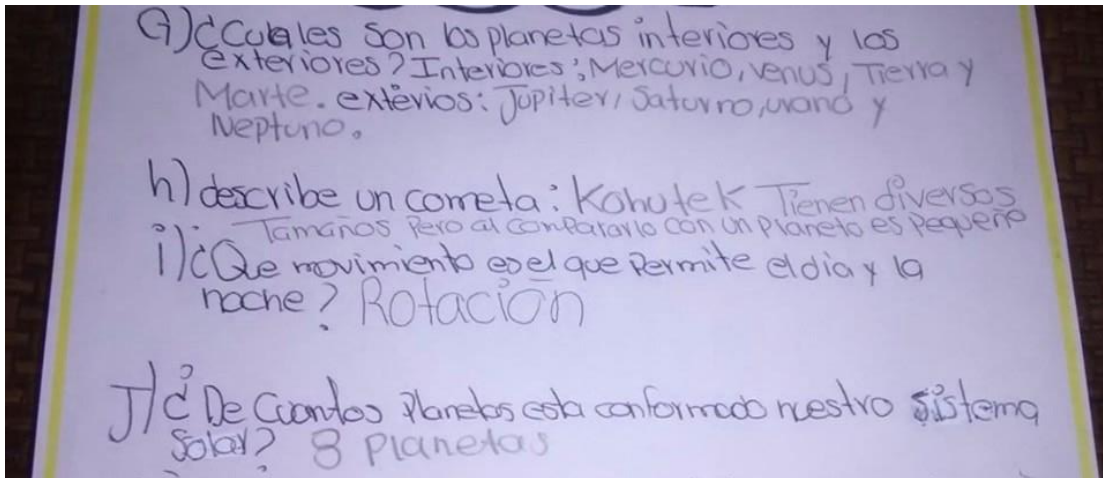 G) ¿Cuales son los planetas interiores y los
exteriores? Interiores: Mercurio, Venus, Tierra y
Marte. extérios: Jupiter, Saturno, urano y
Neptuno.
h) describe un cometa: Kohutek Tienen diversos
Tamaños Pero al compararlo con un planeta es Pequeño
i) ¿Que movimiento es el que Permite el dia y la
noche? Rotación
J) ¿De Cuantos Planetas esta conformado nuestro sistema
Solar? 8 Planetas